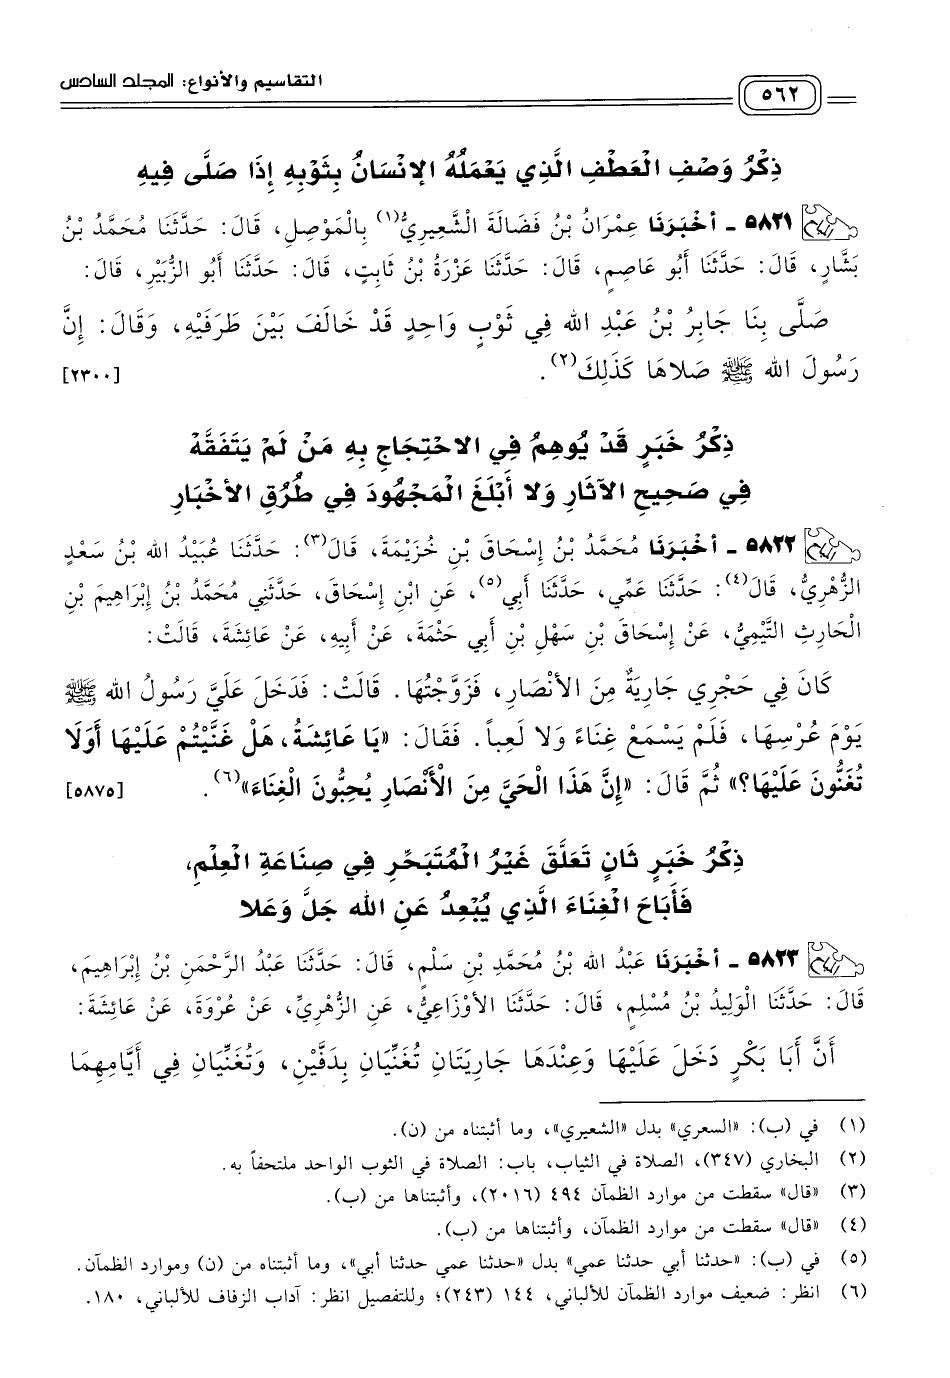 التقاسيم والأنواع: المجلد السادس
٥٦٢
ذِكْرُ وَصْفِ الْعَطْفِ الَّذِي يَعْمَلُهُ الإنْسَانُ بِثَوْبِهِ إِذَا صَلَّى فِيهِ
٥٨٢١ - أخْبَرَنَا عِمْرَانُ بْنُ فَضَالَةَ الشَّعِيرِيُّ(١) بِالْمَوْصِلِ، قَالَ: حَدَّثَنَا مُحَمَّدُ بْنُ
بَشَّارٍ، قَالَ: حَدَّثَنَا أَبُو عَاصِمٍ، قَالَ: حَدَّثَنَا عَزْرَةُ بْنُ ثَابِتٍ، قَالَ: حَدَّثَنَا أَبُو الزُّبَيْرِ، قَالَ:
صَلَّى بِنَا جَابِرُ بْنُ عَبْدِ الله فِي ثَوْبٍ وَاحِدٍ قَدْ خَالَفَ بَيْنَ طَرَفَيْهِ، وَقَالَ: إِنَّ
رَسُولَ الله ﷺ صَلاهَا كَذَلِكَ(٢). [٢٣٠٠]
ذِكْرُ خَبَرٍ قَدْ يُوهِمُ فِي الاحْتِجَاجِ بِهِ مَنْ لَمْ يَتَفَقَّهْ
فِي صَحِيحِ الآثَارِ وَلا أَبْلَغَ الْمَجْهُودَ فِي طُرُقِ الأخْبَارِ
٥٨٢٢ - أخْبَرَنَا مُحَمَّدُ بْنُ إِسْحَاقَ بْنِ خُزَيْمَةَ، قَالَ(٣): حَدَّثَنَا عُبَيْدُ الله بْنُ سَعْدٍ
الزُّهْرِيُّ، قَالَ(٤): حَدَّثَنَا عَمِّي، حَدَّثَنَا أَبِي(٥)، عَنِ ابْنِ إِسْحَاقَ، حَدَّثَنِي مُحَمَّدُ بْنُ إِبْرَاهِيمَ بْنِ
الْحَارِثِ التَّيْمِيُّ، عَنْ إِسْحَاقَ بْنِ سَهْلِ بْنِ أَبِي حَثْمَةَ، عَنْ أَبِيهِ، عَنْ عَائِشَةَ، قَالَتْ:
كَانَ فِي حَجْرِي جَارِيَةٌ مِنَ الأنْصَارِ، فَزَوَّجْتُهَا. قَالَتْ: فَدَخَلَ عَلَيَّ رَسُولُ الله ﷺ
يَوْمَ عُرْسِهَا، فَلَمْ يَسْمَعْ غِنَاءً وَلا لَعِباً. فَقَالَ: «يَا عَائِشَةُ، هَلْ غَنَّيْتُمْ عَلَيْهَا أَوَلَا
تُغَنُّونَ عَلَيْهَا؟» ثُمَّ قَالَ: «إِنَّ هَذَا الْحَيَّ مِنَ الْأَنْصَارِ يُحِبُّونَ الْغِنَاءَ»(٦). [٥٨٧٥]
ذِكْرُ خَبَرٍ ثَانٍ تَعَلَّقَ غَيْرُ الْمُتَبَحِّرِ فِي صِنَاعَةِ الْعِلْمِ،
فَأَبَاحَ الْغِنَاءَ الَّذِي يُبْعِدُ عَنِ الله جَلَّ وَعَلا
٥٨٢٣ - أخْبَرَنَا عَبْدُ الله بْنُ مُحَمَّدِ بْنِ سَلْمٍ، قَالَ: حَدَّثَنَا عَبْدُ الرَّحْمَنِ بْنُ إِبْرَاهِيمَ،
قَالَ: حَدَّثَنَا الْوَلِيدُ بْنُ مُسْلِمٍ، قَالَ: حَدَّثَنَا الأوْزَاعِيُّ، عَنِ الزُّهْرِيِّ، عَنْ عُرْوَةَ، عَنْ عَائِشَةَ:
أَنَّ أَبَا بَكْرٍ دَخَلَ عَلَيْهَا وَعِنْدَهَا جَارِيَتَانِ تُغَنِّيَانِ بِدَفَّيْنِ، وَتُغَنِّيَانِ فِي أَيَّامِهِمَا
(١) في (ب): «السعري» بدل «الشعيري»، وما أثبتناه من (ن).
(٢) البخاري (٣٤٧)، الصلاة في الثياب، باب: الصلاة في الثوب الواحد ملتحفاً به.
(٣) «قال» سقطت من موارد الظمآن ٤٩٤ (٢٠١٦)، وأثبتناها من (ب).
(٤) «قال» سقطت من موارد الظمآن، وأثبتناها من (ب).
(٥) في (ب): «حدثنا أبي حدثنا عمي» بدل «حدثنا عمي حدثنا أبي»، وما أثبتناه من (ن) وموارد الظمآن.
(٦) انظر: ضعيف موارد الظمآن للألباني، ١٤٤ (٢٤٣)؛ وللتفصيل انظر: آداب الزفاف للألباني، ١٨٠.